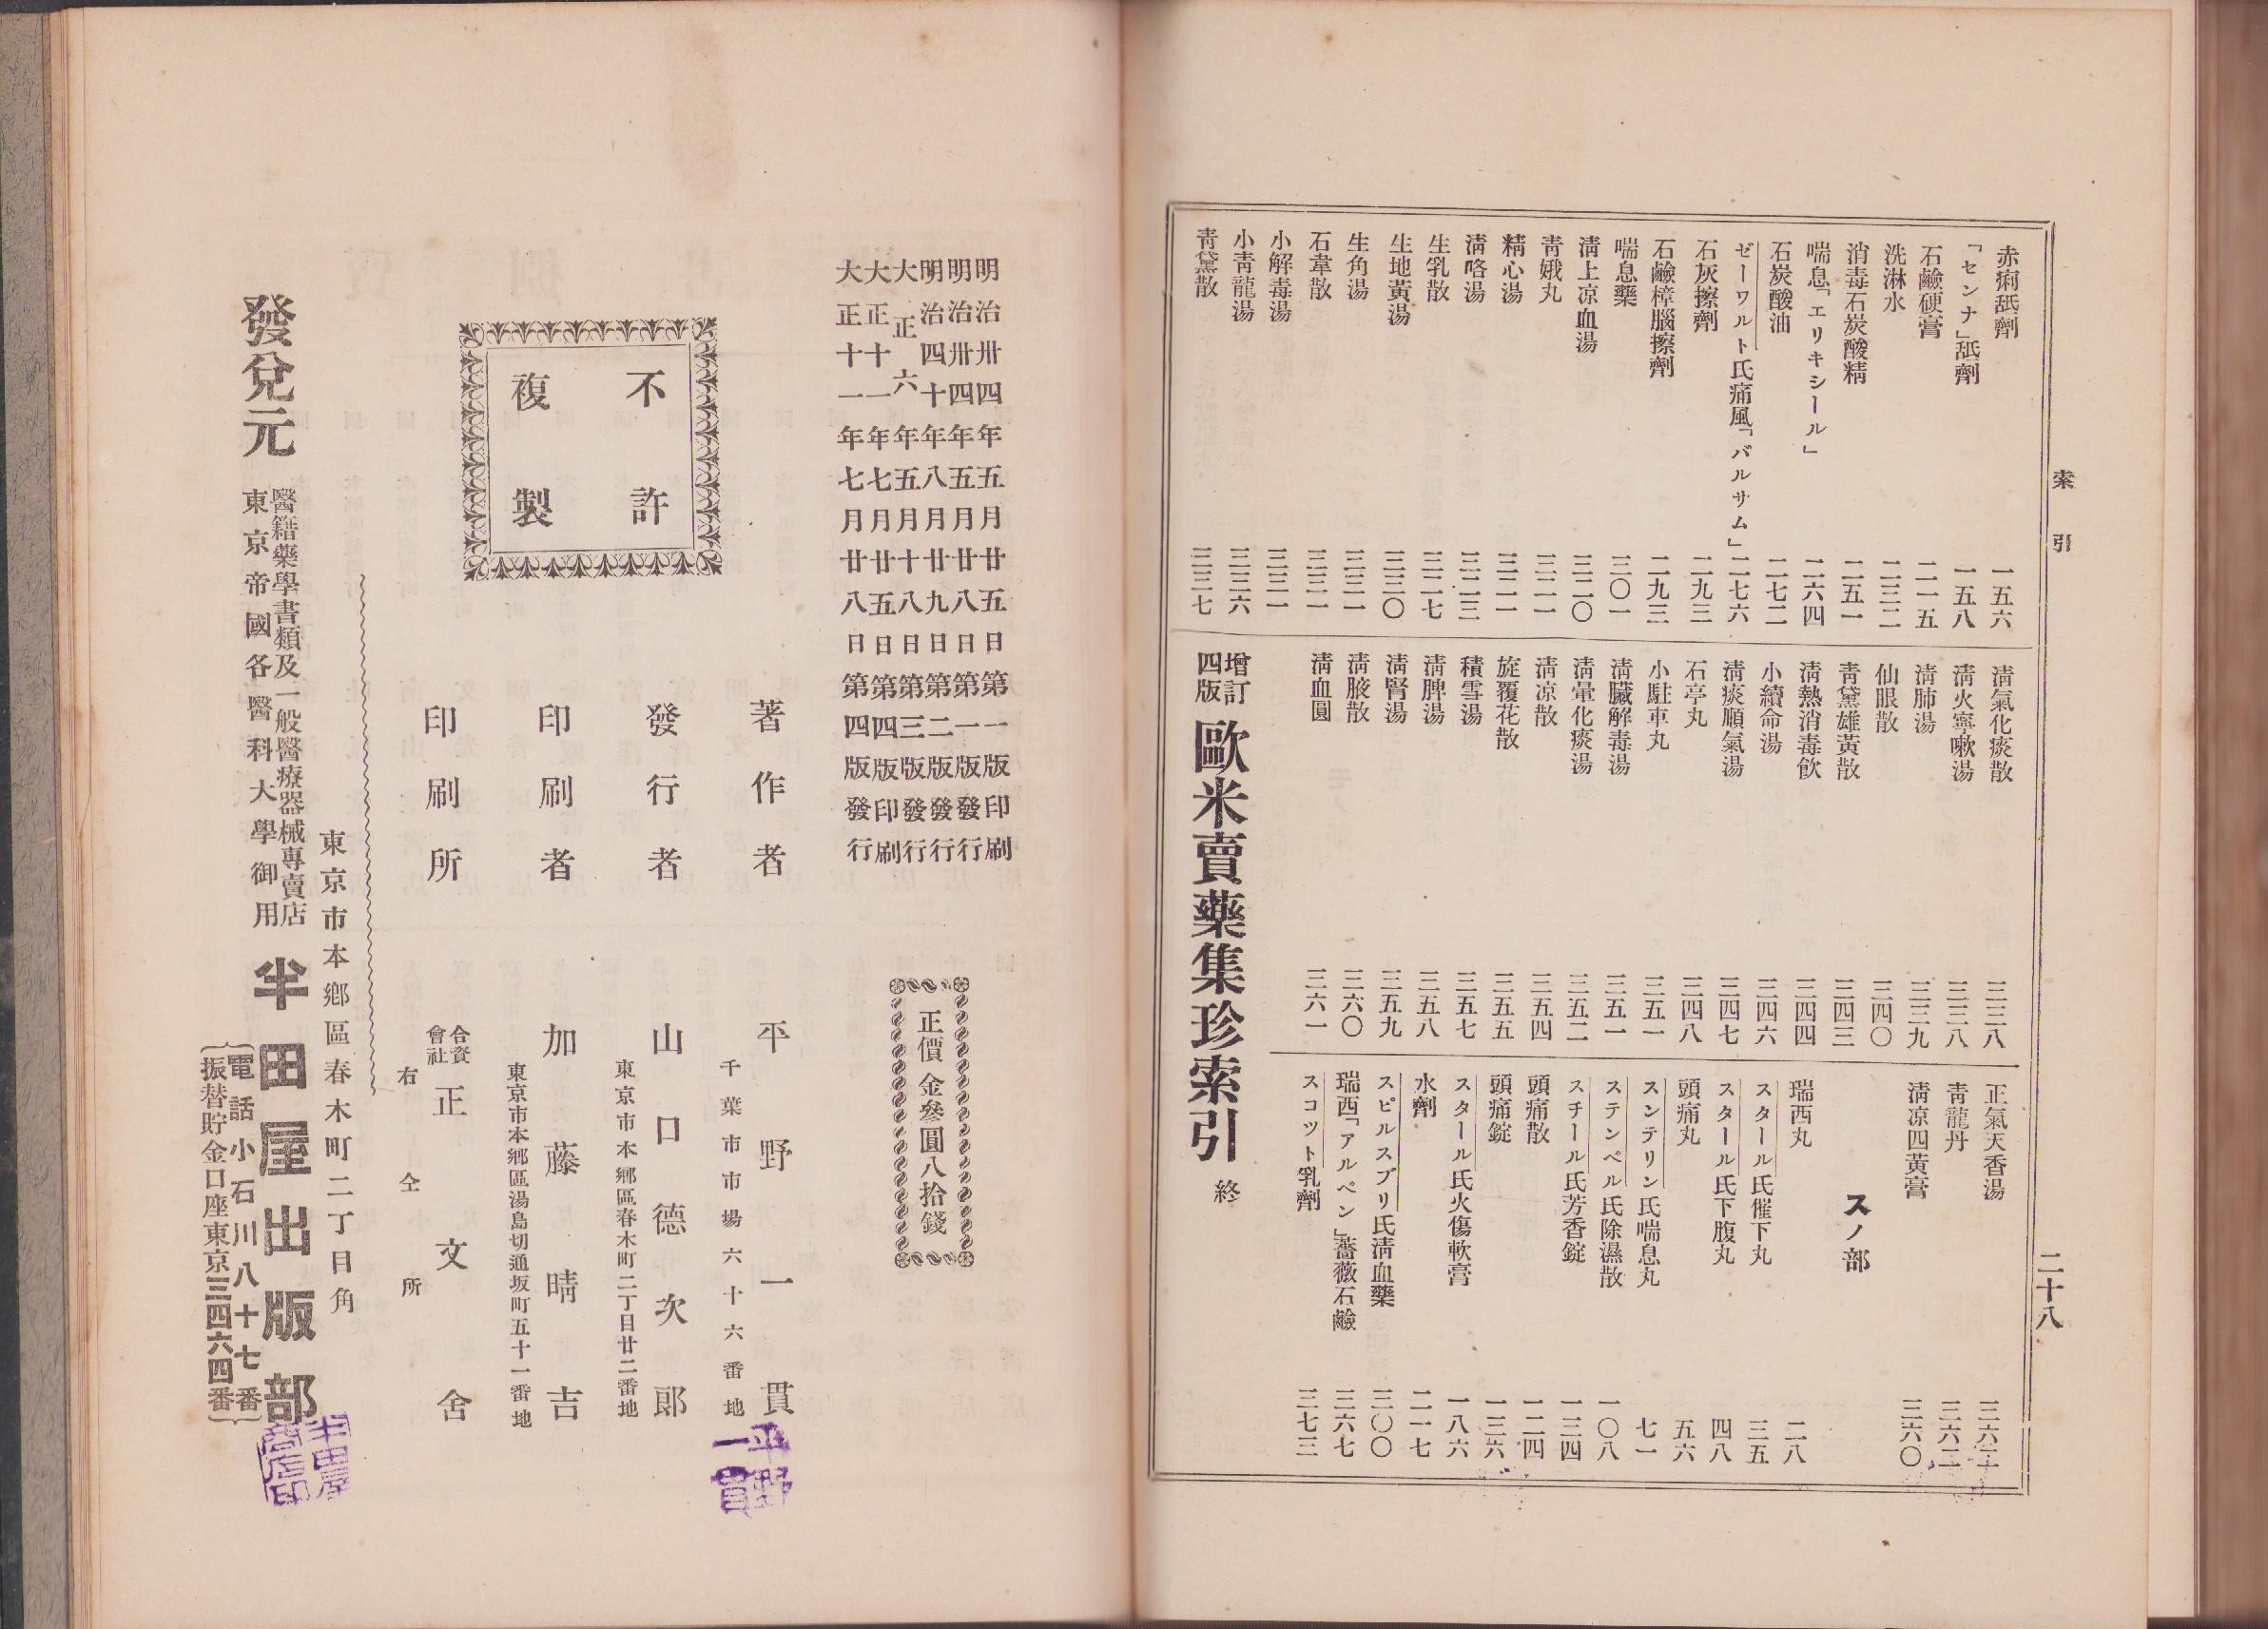 索引
二十八
赤痢舐劑 一五六
「センナ」舐劑 一五八
石鹼硬膏 二一五
洗淋水 二三二
消毒石炭酸精 二五一
喘息「エリキシール」 二六四
石炭酸油 二七二
ゼーワルト氏痛風「バルサム」 二七六
石灰擦劑 二九三
石鹼樟腦擦劑 二九三
喘息藥 三〇一
淸上凉血湯 三二〇
靑娥丸 三二一
精心湯 三二一
淸咯湯 三二三
生乳散 三二七
生地黃湯 三三〇
生角湯 三三一
石韋散 三三一
小解毒湯 三三一
小靑龍湯 三三六
靑黛散 三三七
淸氣化痰散 三三八
淸火寧嗽湯 三三八
淸肺湯 三三九
仙眼散 三四〇
靑黛雄黃散 三四三
淸熱消毒飮 三四四
小續命湯 三四六
淸痰順氣湯 三四七
石亭丸 三四八
小駐車丸 三五一
淸臟解毒湯 三五一
淸暈化痰湯 三五二
淸凉散 三五四
旋覆花散 三五五
積雪湯 三五七
淸脾湯 三五八
淸腎湯 三五九
淸腋散 三六〇
淸血圓 三六一
正氣天香湯 三六二
靑龍丹 三六二
淸凉四黃膏 三六〇
スノ部
瑞西丸 二八
スタール氏催下丸 三五
スタール氏下腹丸 四八
頭痛丸 五六
スンテリン氏喘息丸 七一
ステンペル氏除濕散 一〇八
スチール氏芳香錠 一三四
頭痛散 一二四
頭痛錠 一三六
スタール氏火傷軟膏 一八六
水劑 二一七
スピルスブリ氏淸血藥 三〇〇
瑞西「アルペン」薔薇石鹼 三六七
スコット乳劑 三七三
增訂四版 歐米賣藥集珍索引 終
明治卅四年五月廿五日第一版印刷
明治卅四年五月廿八日第一版發行
明治四十年八月廿九日第二版發行
大正六年五月十八日第三版發行
大正十一年七月廿五日第四版印刷
大正十一年七月廿八日第四版發行
正價金參圓八拾錢
不許
複製
著作者 平野一貫
千葉市市場六十六番地
發行者 山口德次郞
東京市本鄕區春木町二丁目廿二番地
印刷者 加藤晴吉
東京市本鄕區湯島切通坂町五十一番地
印刷所 合資會社 正文舍
右仝所
東京市本鄕區春木町二丁目角
發兌元
醫籍藥學書類及一般醫療器械專賣店
東京帝國各醫科大學御用
半田屋出版部
電話小石川八十七番
振替貯金口座東京三四六四番
平野
一貫